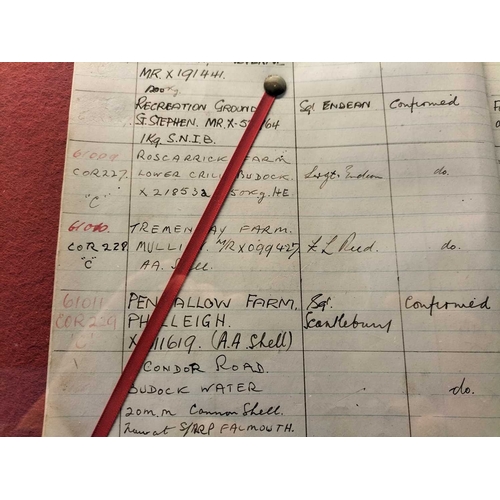 MR. X 191441.
200Kg
RECREATION GROUND Sgt ENDEAN Confirmed
ST. STEPHEN. MR. X-5 /64
1Kg. S.N.I.B.
61009 ROSCARRICK FARM
COR 227. LOWER CRILL BUDOCK. Sergt. Endean do.
"C" X 218532 50Kg. H.E.
61010 TREMEN AY FARM.
COR 228 MULLI MR X099427 F L Reed. do.
"C" AA. Shell.
61011 PEN ALLOW FARM. Sgt. Confirmed
COR 229 PHILLEIGH. Scantlebury
"C" X 11619. (A.A Shell)
CONDOR ROAD.
BUDOCK WATER do.
20 m.m Cannon Shell.
now at S/ARP FALMOUTH.